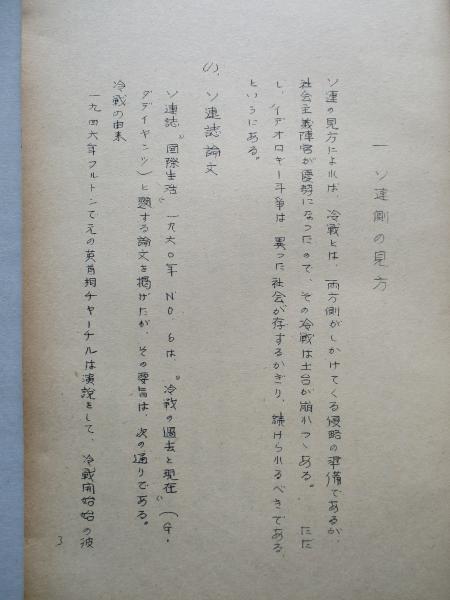 一 ソ連側の見方
ソ連の見方によれば、冷戦とは、西方側がしかけてくる侵略の準備であるが、
社会主義陣営が優勢になったので、その冷戦は土台が崩れつゝある。 ただ
し、イデオロギー斗争は、異った社会が存するかぎり、続けられるべきである
というにある。
(1). ソ連誌論文
ソ連誌〝国際生活〟一九六〇年 NO 6は、〝冷戦の過去と現在〟(G・
ダデイヤンツ)と題する論文を掲げたが、その要旨は、次の通りである。
冷戦の由来
一九四六年フルトンで元の英首相チャーチルは演説をして、冷戦開始始の彼
3